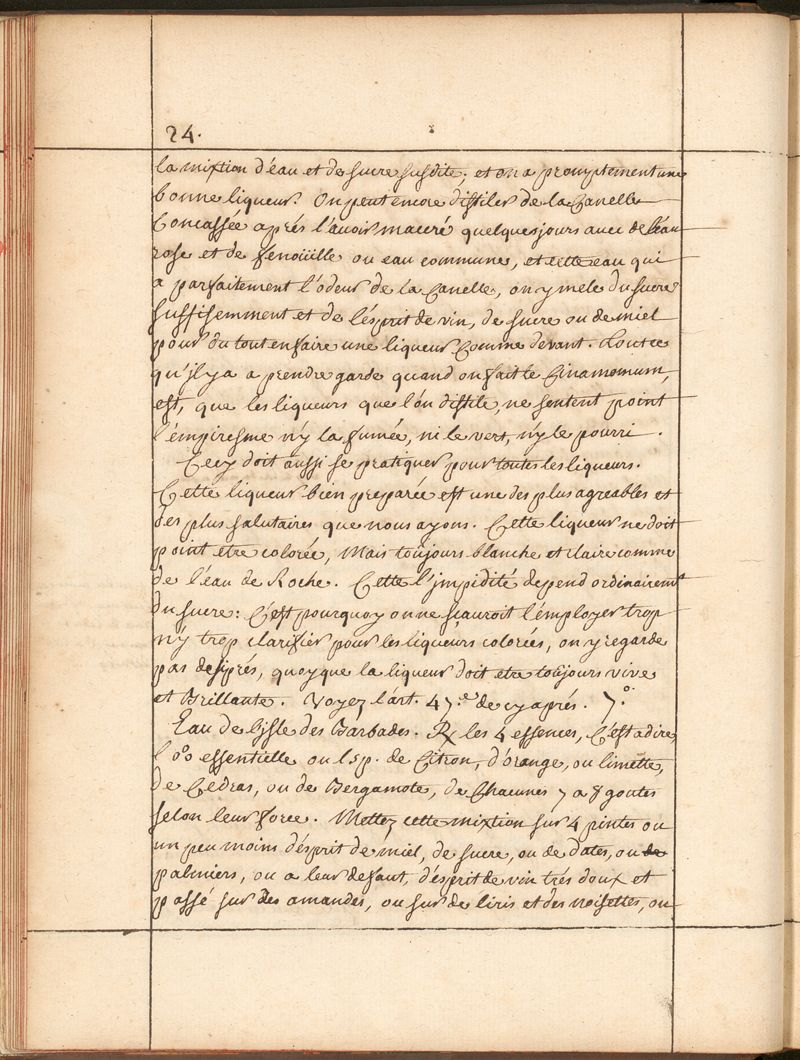 24.
la mixtion d'éau et de sucre susdite; et on a promptement une
bonne liqueur. On peut encore distiler de la Canelle
Concassée aprés l'avoir maceré quelques jours avec de l'éau
rose et de fenoüille ou eau commune, et cette eau qui
a parfaitement l'odeur de la Canelle, on y mele du sucre
suffisemment et de l'ésprit de vin, de sucre ou de miel
pour du tout en faire une liqueur Comme devant. Tout ce
qu'il y a a prendre garde quand on fait le Cinamomum,
est, que les liqueurs que l'on distile, ne sentent point
l'émpiresme n'y la fumée, ni le vert, n'y le pourri.
Cecy doit aussi se pratiquer pour toutes les liqueurs.
Cette liqueur bien preparée est une des plus agreables et
des plus salutaires que nous ayons. Cette liqueur ne doit
point etre colorée, Mais toûjours blanche et claire comme
de l'éau de Roche. Cette l'jmpidité depend ordinairemt
du sucre: C'est pourquoy on ne sçauroit l'émployer trop
n'y trop clarifier pour les liqueurs colorées, on y regarde
pas de si prés, quoyque la liqueur doit etre toûjours vive
et Brillante. Voyez l'art. 47.e de cy aprés. 7.o
Eau de l'jsle des Barbades. ℞ les 4 essences, C'est a dire,
l'oo essentielle ou l'sp. de Citron, d'orange, ou limette,
de Cedras, ou de Bergamote, de Chacunes 7 a 8 goutes
selon leur force. Mettez cette mixtion sur 4 pintes ou
un peu moins d'ésprit de miel, de sucre, ou de dates, ou de
palmiers, ou a leur defaut, d'ésprit de vin trés doux et
passé sur des amandes, ou sur de l'iris et des noisettes, ou